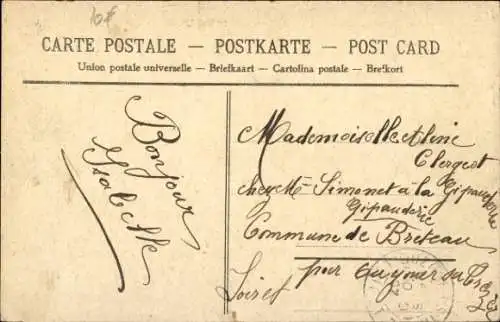 10f
CARTE POSTALE — POSTKARTE — POST CARD
Union postale universelle — Briefkaart — Cartolina postale — Brefkort
Bonjour
Isabelle
Mademoiselle Aline
Clergeot
chez Mr Simonet à la Gipauderie
Gipauderie
Commune de Breteau
par
Loiret